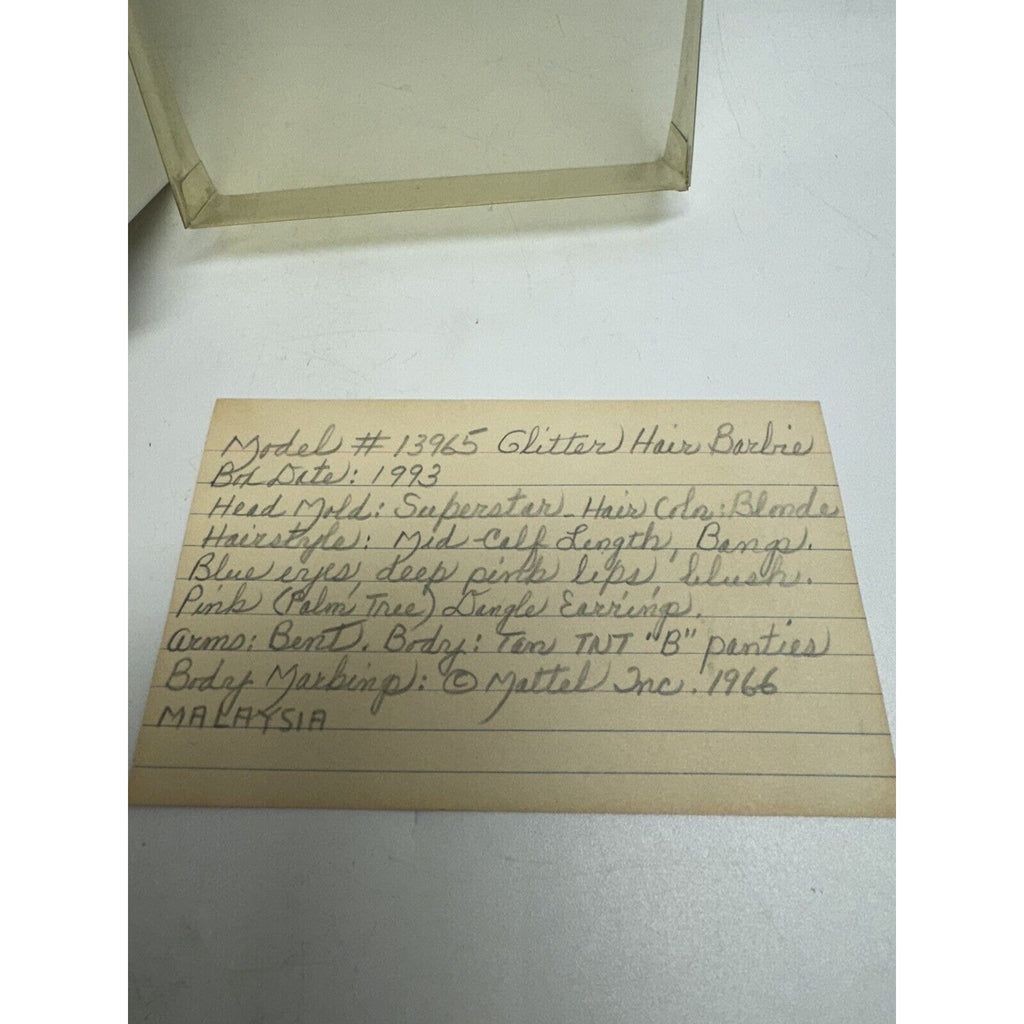 Model # 13965 Glitter Hair Barbie
Box Date: 1993
Head Mold: Superstar - Hair Color: Blonde
Hairstyle: Mid-Calf Length, Bangs.
Blue eyes, deep pink lips, blush.
Pink (Palm Tree) Dangle Earrings.
Arms: Bent. Body: Tan TNT "B" panties
Body Markings: © Mattel Inc. 1966
MALAYSIA